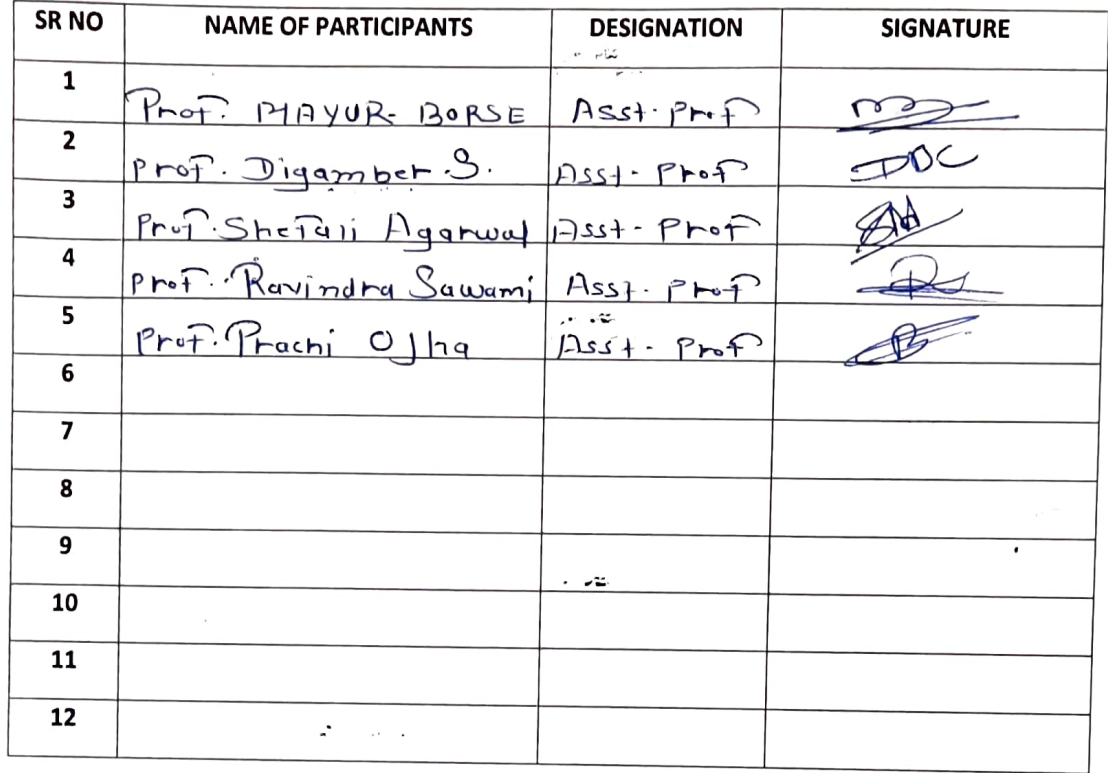 SR NO NAME OF PARTICIPANTS DESIGNATION SIGNATURE
1 Prof. MAYUR BORSE Asst. Prof
2 Prof. Digamber S. Asst. Prof DDC
3 Prof. Shefali Agarwal Asst. Prof
4 Prof. Ravindra Sawami Asst. Prof
5 Prof. Prachi Ojha Asst. Prof
6
7
8
9
10
11
12